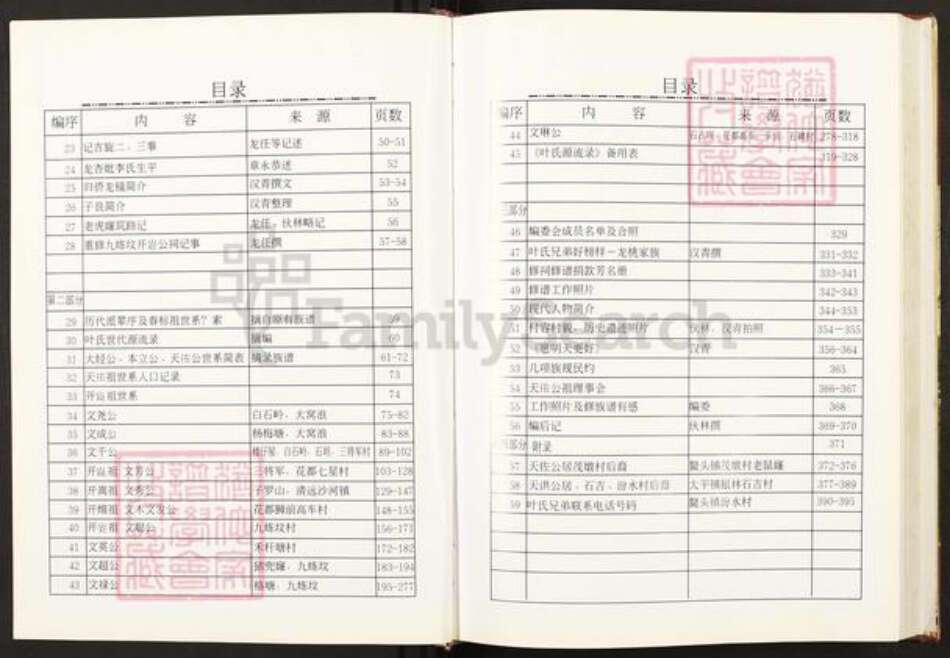 目录
编序 内 容 来 源 页数
23 记吉旋二、三事 龙任等记述 50-51
24 龙杏毗李氏生平 章永恭述 52
25 归侨龙櫵简介 汉青撰文 53-54
26 子良简介 汉青整理 55
27 老虎㘵筑路记 龙任、伙林略记 56
28 重修九练坟开岩公祠记事 龙任撰 57-58
第二部分
29 历代派辈序及春标祖世系?索 摘自原有族谱 59
30 叶氏世代源流录 摘编 60
31 大经公、本立公、天佐公世系简表 摘录族谱 61-72
32 天佐祖世系人口记录 73
33 开 祖世系 74
34 文尧公 白石岭、大窝浪 75-82
35 文成公 杨梅塘、大窝浪 83-88
36 文千公 白石岭、石坦、三将军村 89-102
37 开 祖 文芳公 三将军、花都七星村 103-128
38 开嵩祖 文秀公 子罗山、清远沙河镇 129-147
39 开 祖 文木文发公 花都狮前高车村 148-155
40 开岩祖 文聪公 九练坟村 156-171
41 文英公 禾秆塘村 172-182
42 文超公 猪兜㘵、九练坟 183-194
43 文禄公 格塘、九练坟 195-277
目录
编序 内 容 来 源 页数
44 文琳公 278-318
45 《叶氏源流录》备用表 319-328
三部分
46 编委会成员名单及合照 329
47 叶氏兄弟好榜样-龙桃家族 汉青撰 331-332
48 修祠修谱捐款芳名册 333-341
49 修谱工作照片 342-343
50 现代人物简介 344-353
51 村容村貌、历史遗迹照片 伙林、汉青拍照 354-355
52 《愿明天更好》 汉青 356-364
53 几项族规民约 365
54 天佐公祖理事会 366-367
55 工作照片及修族谱有感 编委 368
56 编后记 伙林撰 369-370
部分 附录 371
57 天佐公居茂墩村后裔 鳌头镇茂墩村老鼠㘵 372-376
58 天洪公居、石吉、汾水村后裔 太平镇 林石吉村 377-389
59 叶氏兄弟联系电话号码 鳌头镇汾水村 390-395
FamilySearch